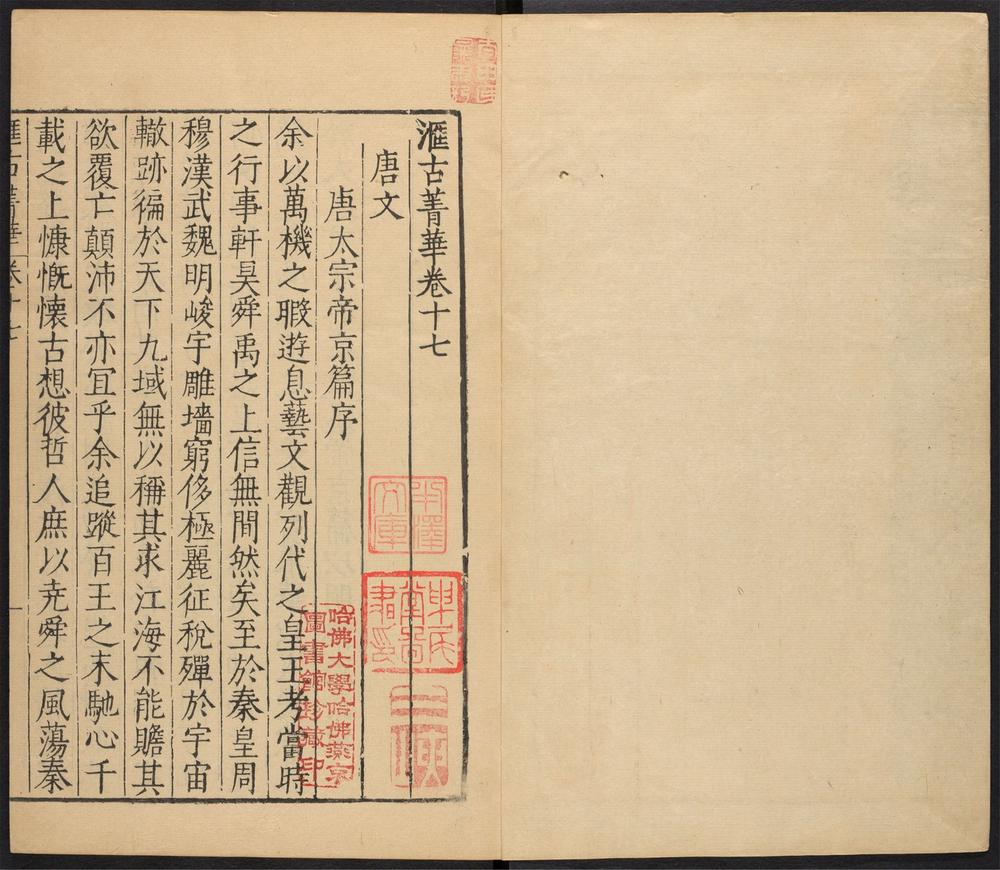 滙古菁華卷十七
唐文
唐太宗帝京篇序
余以萬機之暇遊息藝文觀列代之皇王考當時
之行事軒昊舜禹之上信無間然矣至於秦皇周
穆漢武魏明峻宇雕墻窮侈極麗征稅殫於宇宙
轍跡徧於天下九域無以稱其求江海不能贍其
欲覆亡顛沛不亦冝乎余追蹤百王之末馳心千
載之上慷慨懷古想彼哲人庶以尭舜之風蕩秦
滙古菁華 卷十七 一
哈佛大學哈佛燕京
圖書館珍藏印